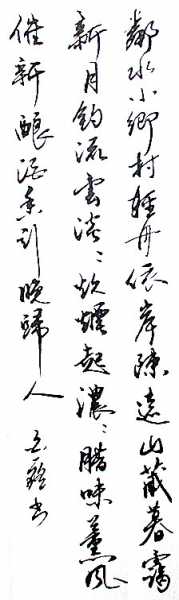 鄰水小鄉村輕舟依岸陳遠山藏暮靄
新月鈎流雲淡〻炊煙起濃〻腊味薰風
催新釀酒香引晚歸人